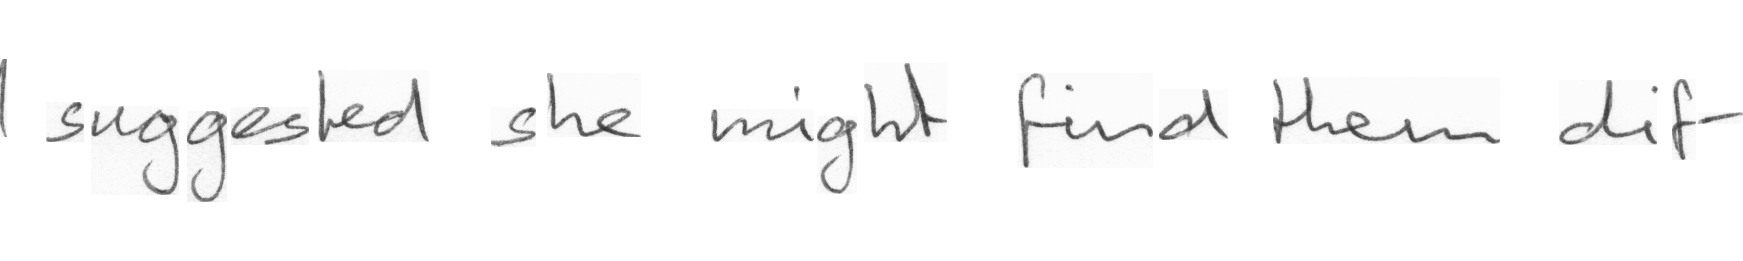 I suggested she might find them dif-